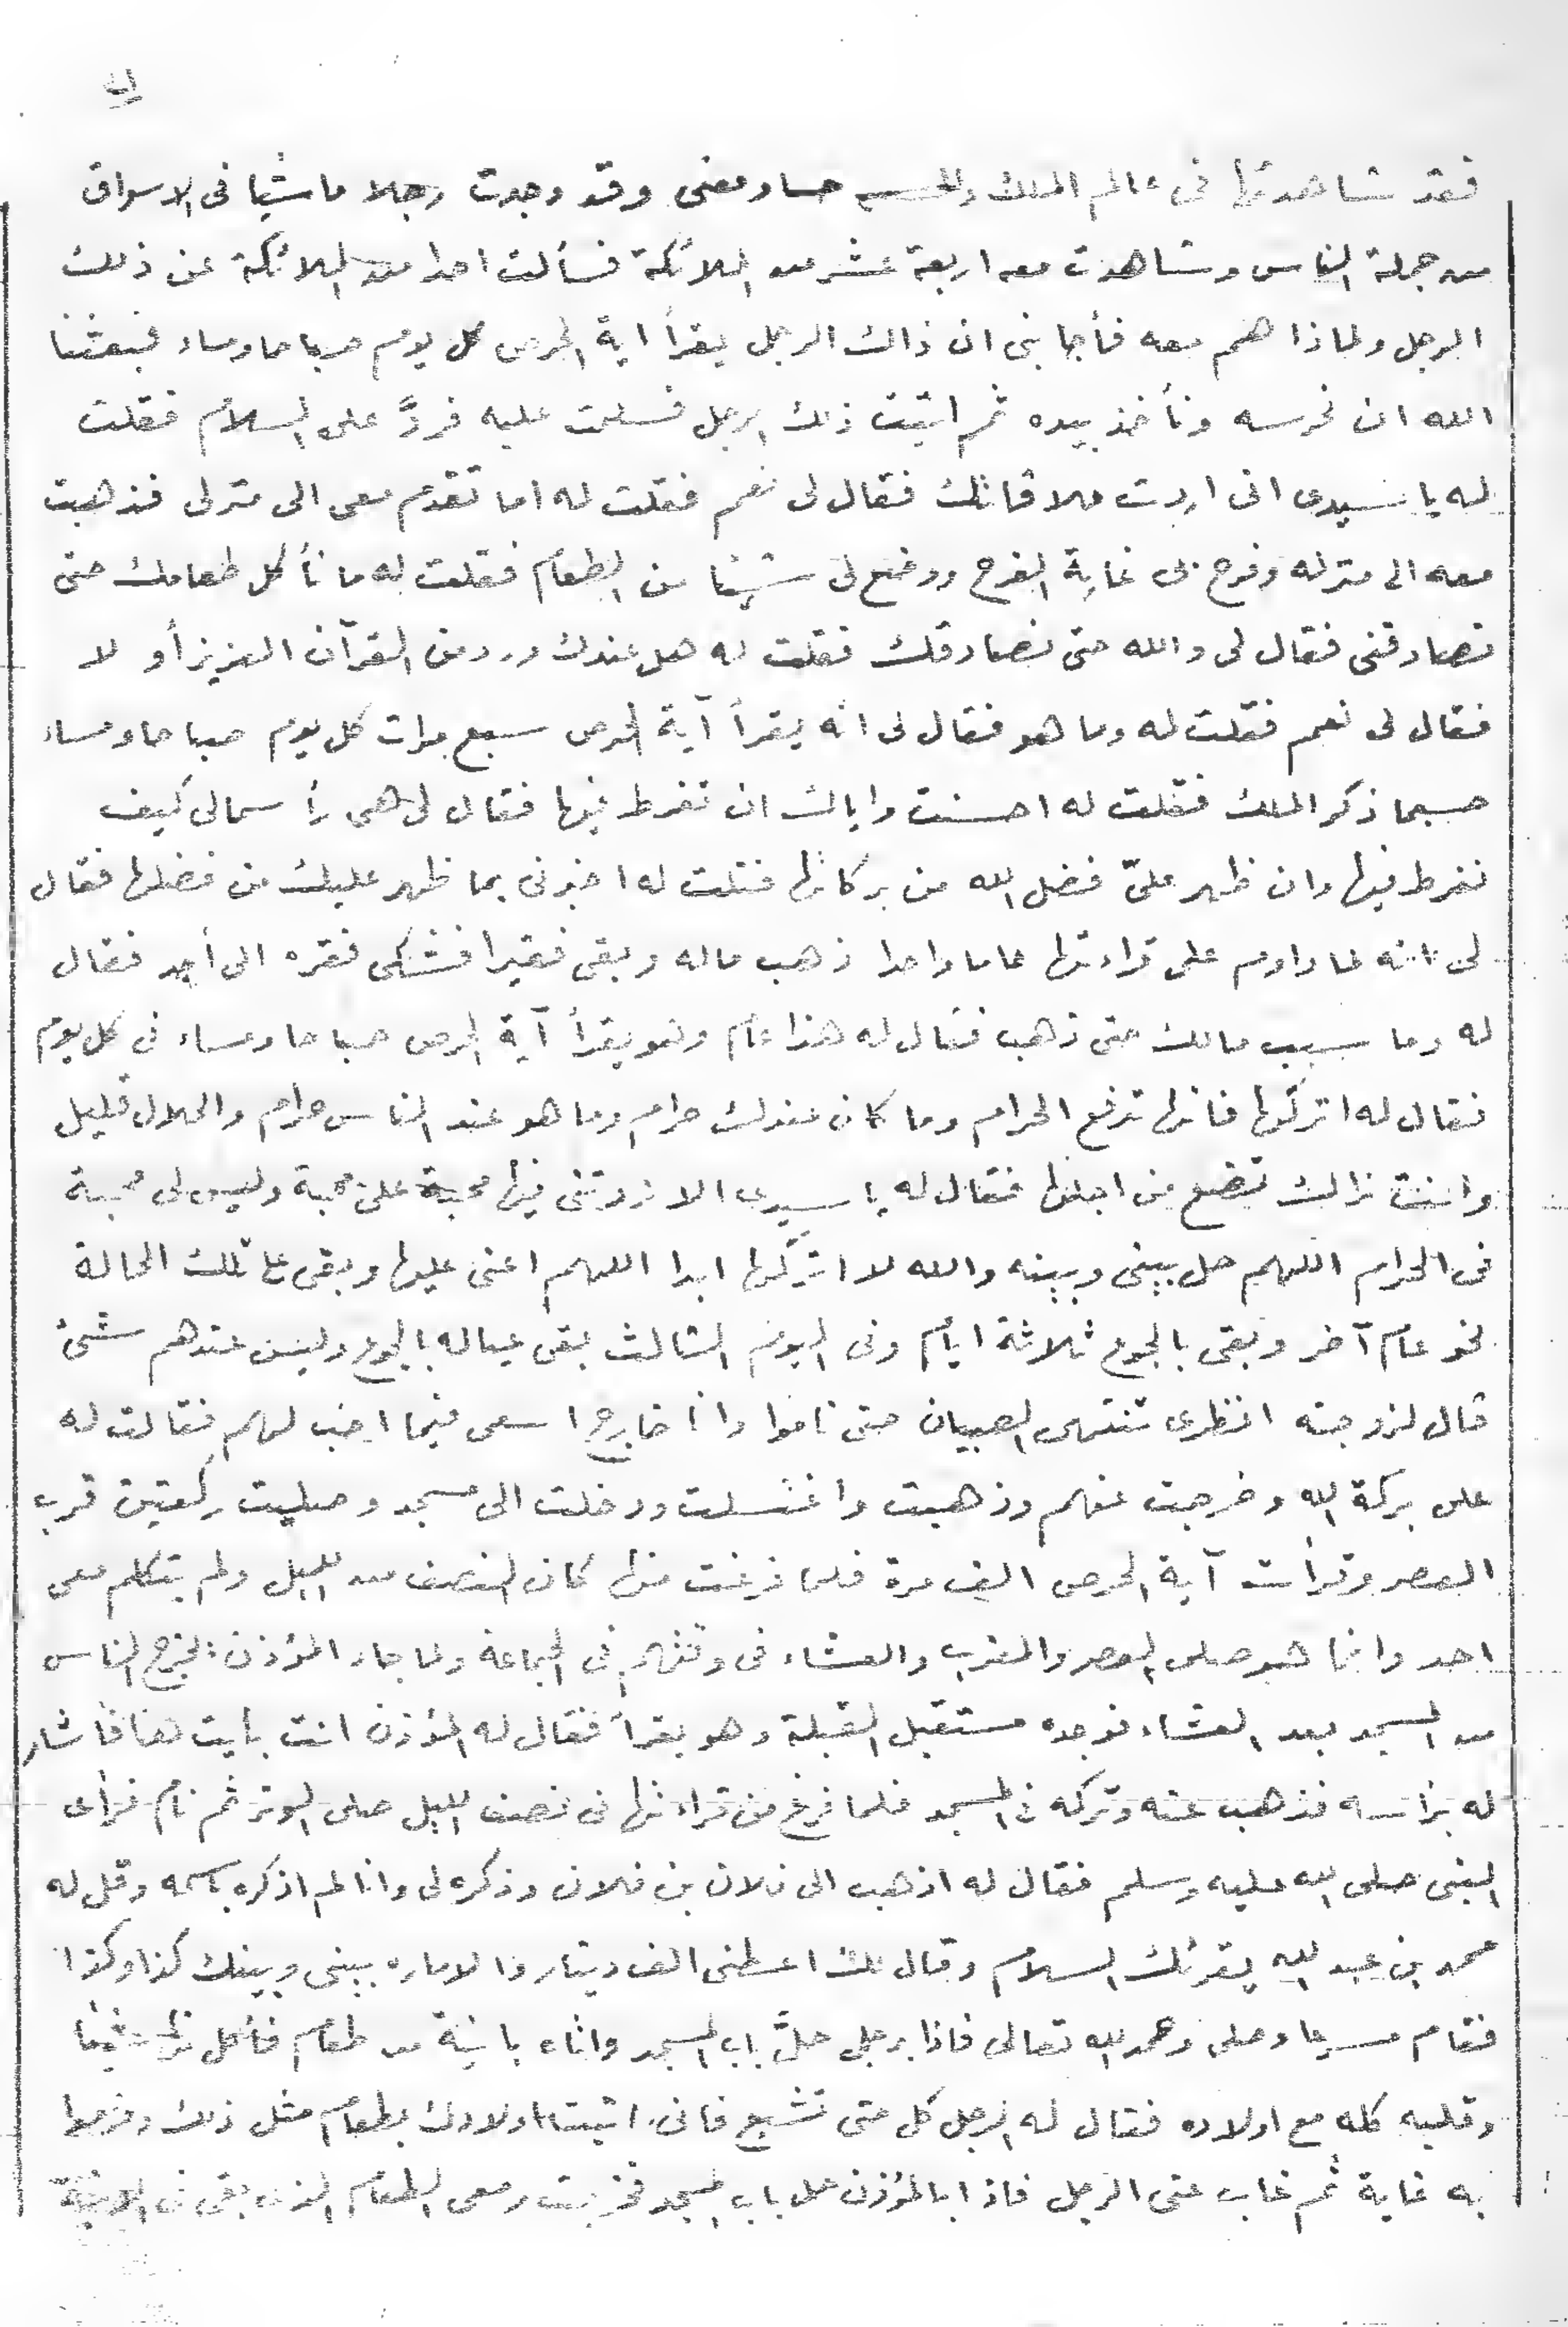 فقد شاهدتها فى عالم الملك والحس حسا ومعنى وقد وجدت رجلا ماشيا فى الاسواق
من جملة الناس وشاهدت معه اربعة عشر من الملائكة فسألت احدا من الملائكة عن ذلك
الرجل ولماذا هم معه فأجابنى ان ذاك الرجل يقرأ اية الحرص كل يوم صباحا ومساء فبعثنا
الله ان نحرسه ونأخذ بيده ثم اتيت ذلك الرجل فسلمت عليه فردَّ على السلام فقلت
له يا سيدى انى اردت ملاقاتك فقال لى نعم فقلت له اما تقدم معى الى منزلى فذهبت
معه الى منزله وفرح بى غاية الفرح ووضع لى شيئا من الطعام فقلت له ما نأكل طعامك حتى
تصادقنى فقال لى والله حتى نصادقك فقلت له هل عندك ورد من القرآن العزيز أو لا
فقال لى نعم فقلت له وما هو فقال لى انه يقرأ آية الحرص سبع مرات كل يوم صباحا ومساء
حسبما ذكر الملك فقلت له احسنت واياك ان تفرط فيها فقال لى هى رأسمالى كيف
نفرط فيها وان ظهر علىّ فضل الله من بركاتها فقلت له اخبرنى بما ظهر عليك من فضلها فقال
لى انه لما داوم على قراءتها عاما واحدا ذهب ماله وبقى فقيرا فشكى فقره الى أحد فقال
له وما سبب مالك حتى ذهب فقال له هذا عام وهو يقرأ آية الحرص صباحا ومساء فى كل يوم
فقال له اتركها فانها ترفع الحرام وما كان عندك حرام وما هو عند الناس حرام والحلال قليل
وانت نراك تضع من اجلها فقال له يا سيدى الا زدتنى فيها محبة على محبة وليس لى محبة
فى الحرام اللهم حل بينى وبينه والله لا اتركها ابدا اللهم اعنى عليها وبقى على تلك الحالة
نحو عام آخر وبقى بالجوع ثلاثة ايام وفى اليوم الثالث بقى عياله بالجوع وليس عندهم شئ
قال لزوجته انظرى تنتهى الصبيان حتى ناموا وانا خارج اسعى فيما اجب لهم فقالت له
على بركة الله وخرجت عنهم وذهبت واغتسلت ودخلت الى مسجد وصليت ركعتين قرب
العصر وقرأت آية الحرص الف مرة فلما فرغت منها كان النصف من الليل ولم يتكلم معى
احد وانما هو صلى العصر والمغرب والعشاء فى وقتهم فى الجماعة ولما جاء المؤذن لخرج الناس
من المسجد بعد العشاء فوجده مستقبل القبلة وهو يقرأ فقال له المؤذن انت بايت هنا فأشار
له برأسه فذهب عنه وتركه فى المسجد فلما فرغ من قراءتها فى نصف الليل صلى الوتر ثم نام فرأى
النبى صلى الله عليه وسلم فقال له اذهب الى فلان بن فلان وذكره لى وانا لم اذكره باسمه وقل له
محمد بن عبد الله يقرئك السلام وقال لك اعطنى الف دينار والاماره بينى وبينك كذا وكذا
فقام مسرعا وصلى وحمد الله تعالى فاذا برجل حلَّ باب المسجد واتاه بانية من طعام فأكل منها شيئا
وقلبه كله مع اولاده فقال له الرجل كل حتى تشبع فانى اتيت اولادك بطعام مثل ذلك وفرحوا
به غاية ثم غاب عنى الرجل فاذا بالمؤذن حل باب المسجد فخرجت ومعى الطعام الذى بقى فى الانية